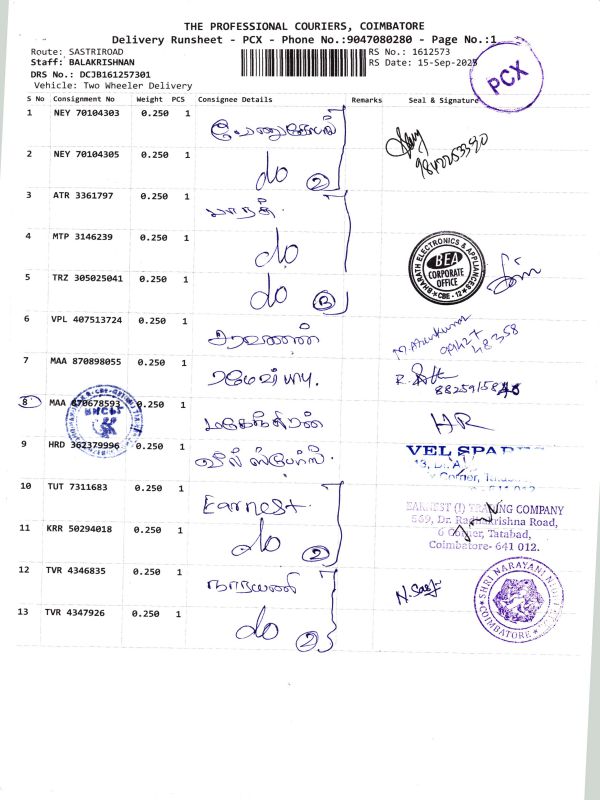 THE PROFESSIONAL COURIERS, COIMBATORE
Delivery Runsheet - PCX - Phone No.:9047080280 - Page No.:1
Route: SASTRIROAD
RS No.: 1612573
Staff: BALAKRISHNAN
RS Date: 15-Sep-2025
DRS No.: DCJB161257301
Vehicle: Two Wheeler Delivery
PCX
S No Consignment No Weight PCS Consignee Details Remarks Seal & Signature
1 NEY 70104303 0.250 1
2 NEY 70104305 0.250 1 do 2
3 ATR 3361797 0.250 1
4 MTP 3146239 0.250 1 do
BHARATH ELECTRONICS & APPLIANCES
BEA
CORPORATE
OFFICE
CBE - 12
5 TRZ 305025041 0.250 1 do 3
6 VPL 407513724 0.250 1 சரவணன்
7 MAA 870898055 0.250 1
8 MAA 870678593 0.250 1 மகேந்திரன் HR
9 HRD 362379996 0.250 1 வேல் ஸ்பேர்ஸ்
VEL SPARES
10 TUT 7311683 0.250 1 Earnest
EARNEST (I) TRADING COMPANY
669, Dr. Radhakrishna Road,
6 Corner, Tatabad,
Coimbatore- 641 012.
11 KRR 50294018 0.250 1 do 2
12 TVR 4346835 0.250 1 நாராயணி
13 TVR 4347926 0.250 1 do 2
SHRI NARAYANI
COIMBATORE